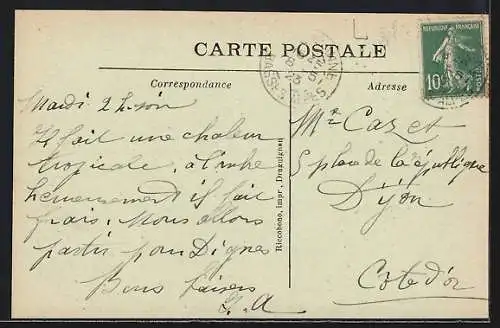 CARTE POSTALE
Correspondance
Adresse
RÉPUBLIQUE FRANÇAISE
10
BASSES
Mardi 2 h. soir
Il fait une chaleur
tropicale, à l'ombre
heureusement il fait
frais. Nous allons
partir pour Dignes
Bons baisers
L. A
Riccobono, impr., Draguignan
Mr Cazet
5 place de la république
Dijon
Côte d'or